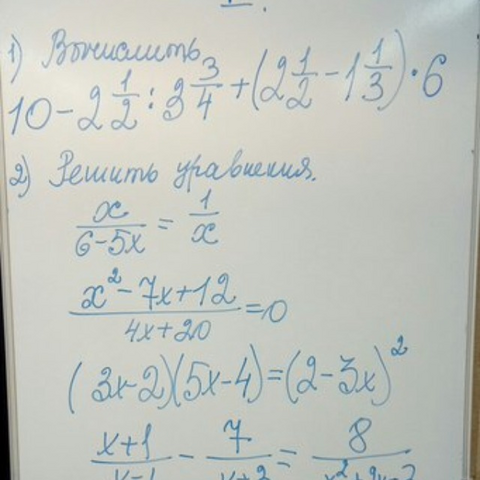 1) Вычислить
10 - 2 1/2 : 3 3/4 + (2 1/2 - 1 1/3) · 6
2) Решить уравнения.
x/(6-5x) = 1/x
(x² - 7x + 12)/(4x + 20) = 0
(3x-2)(5x-4) = (2-3x)²
x+1 7 8
- =